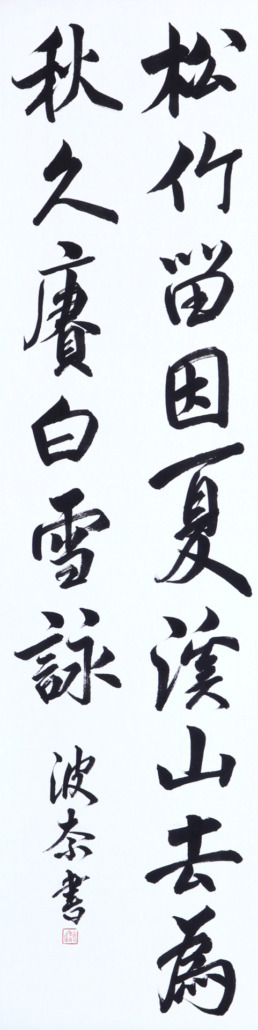 松竹留因夏溪山去為
秋久賡白雪詠
波奈書